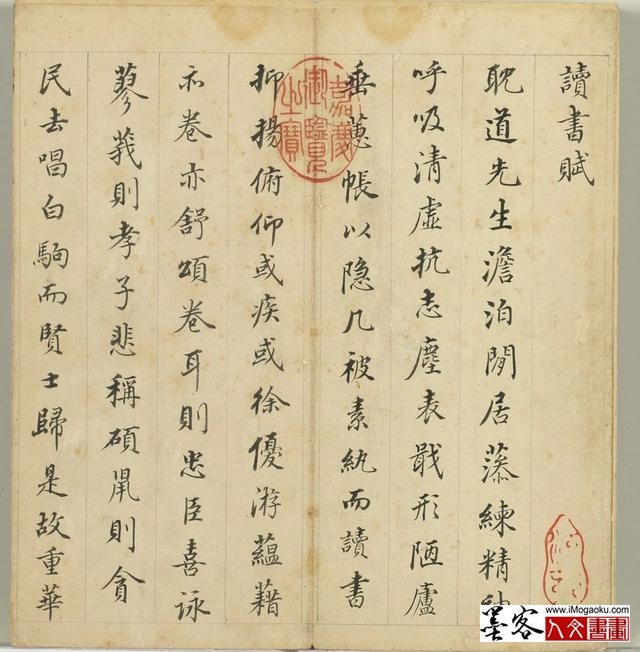 讀書賦
耽道先生澹泊閒居藻練精神
呼吸清虛抗志塵表戢形陋廬
垂蕙帳以隱几被素紈而讀書
抑揚俯仰或疾或徐優游蘊藉
亦卷亦舒頌卷耳則忠臣喜詠
蓼莪則孝子悲稱碩鼠則貪
民去唱白駒而賢士歸是故重華
嘉慶御覽之寶
墨客
www.iMogaoku.com
人文書畫